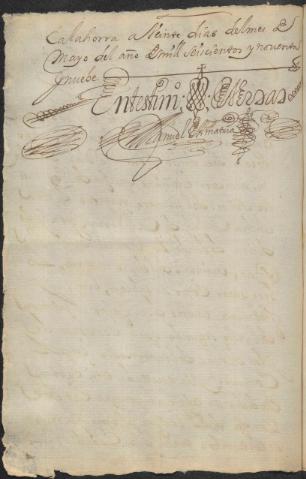 Calahorra a Veinte dias del mes de
Mayo del año de mill Seiscientos y noventa
y nuebe
En testim: de Verdad
Manuel